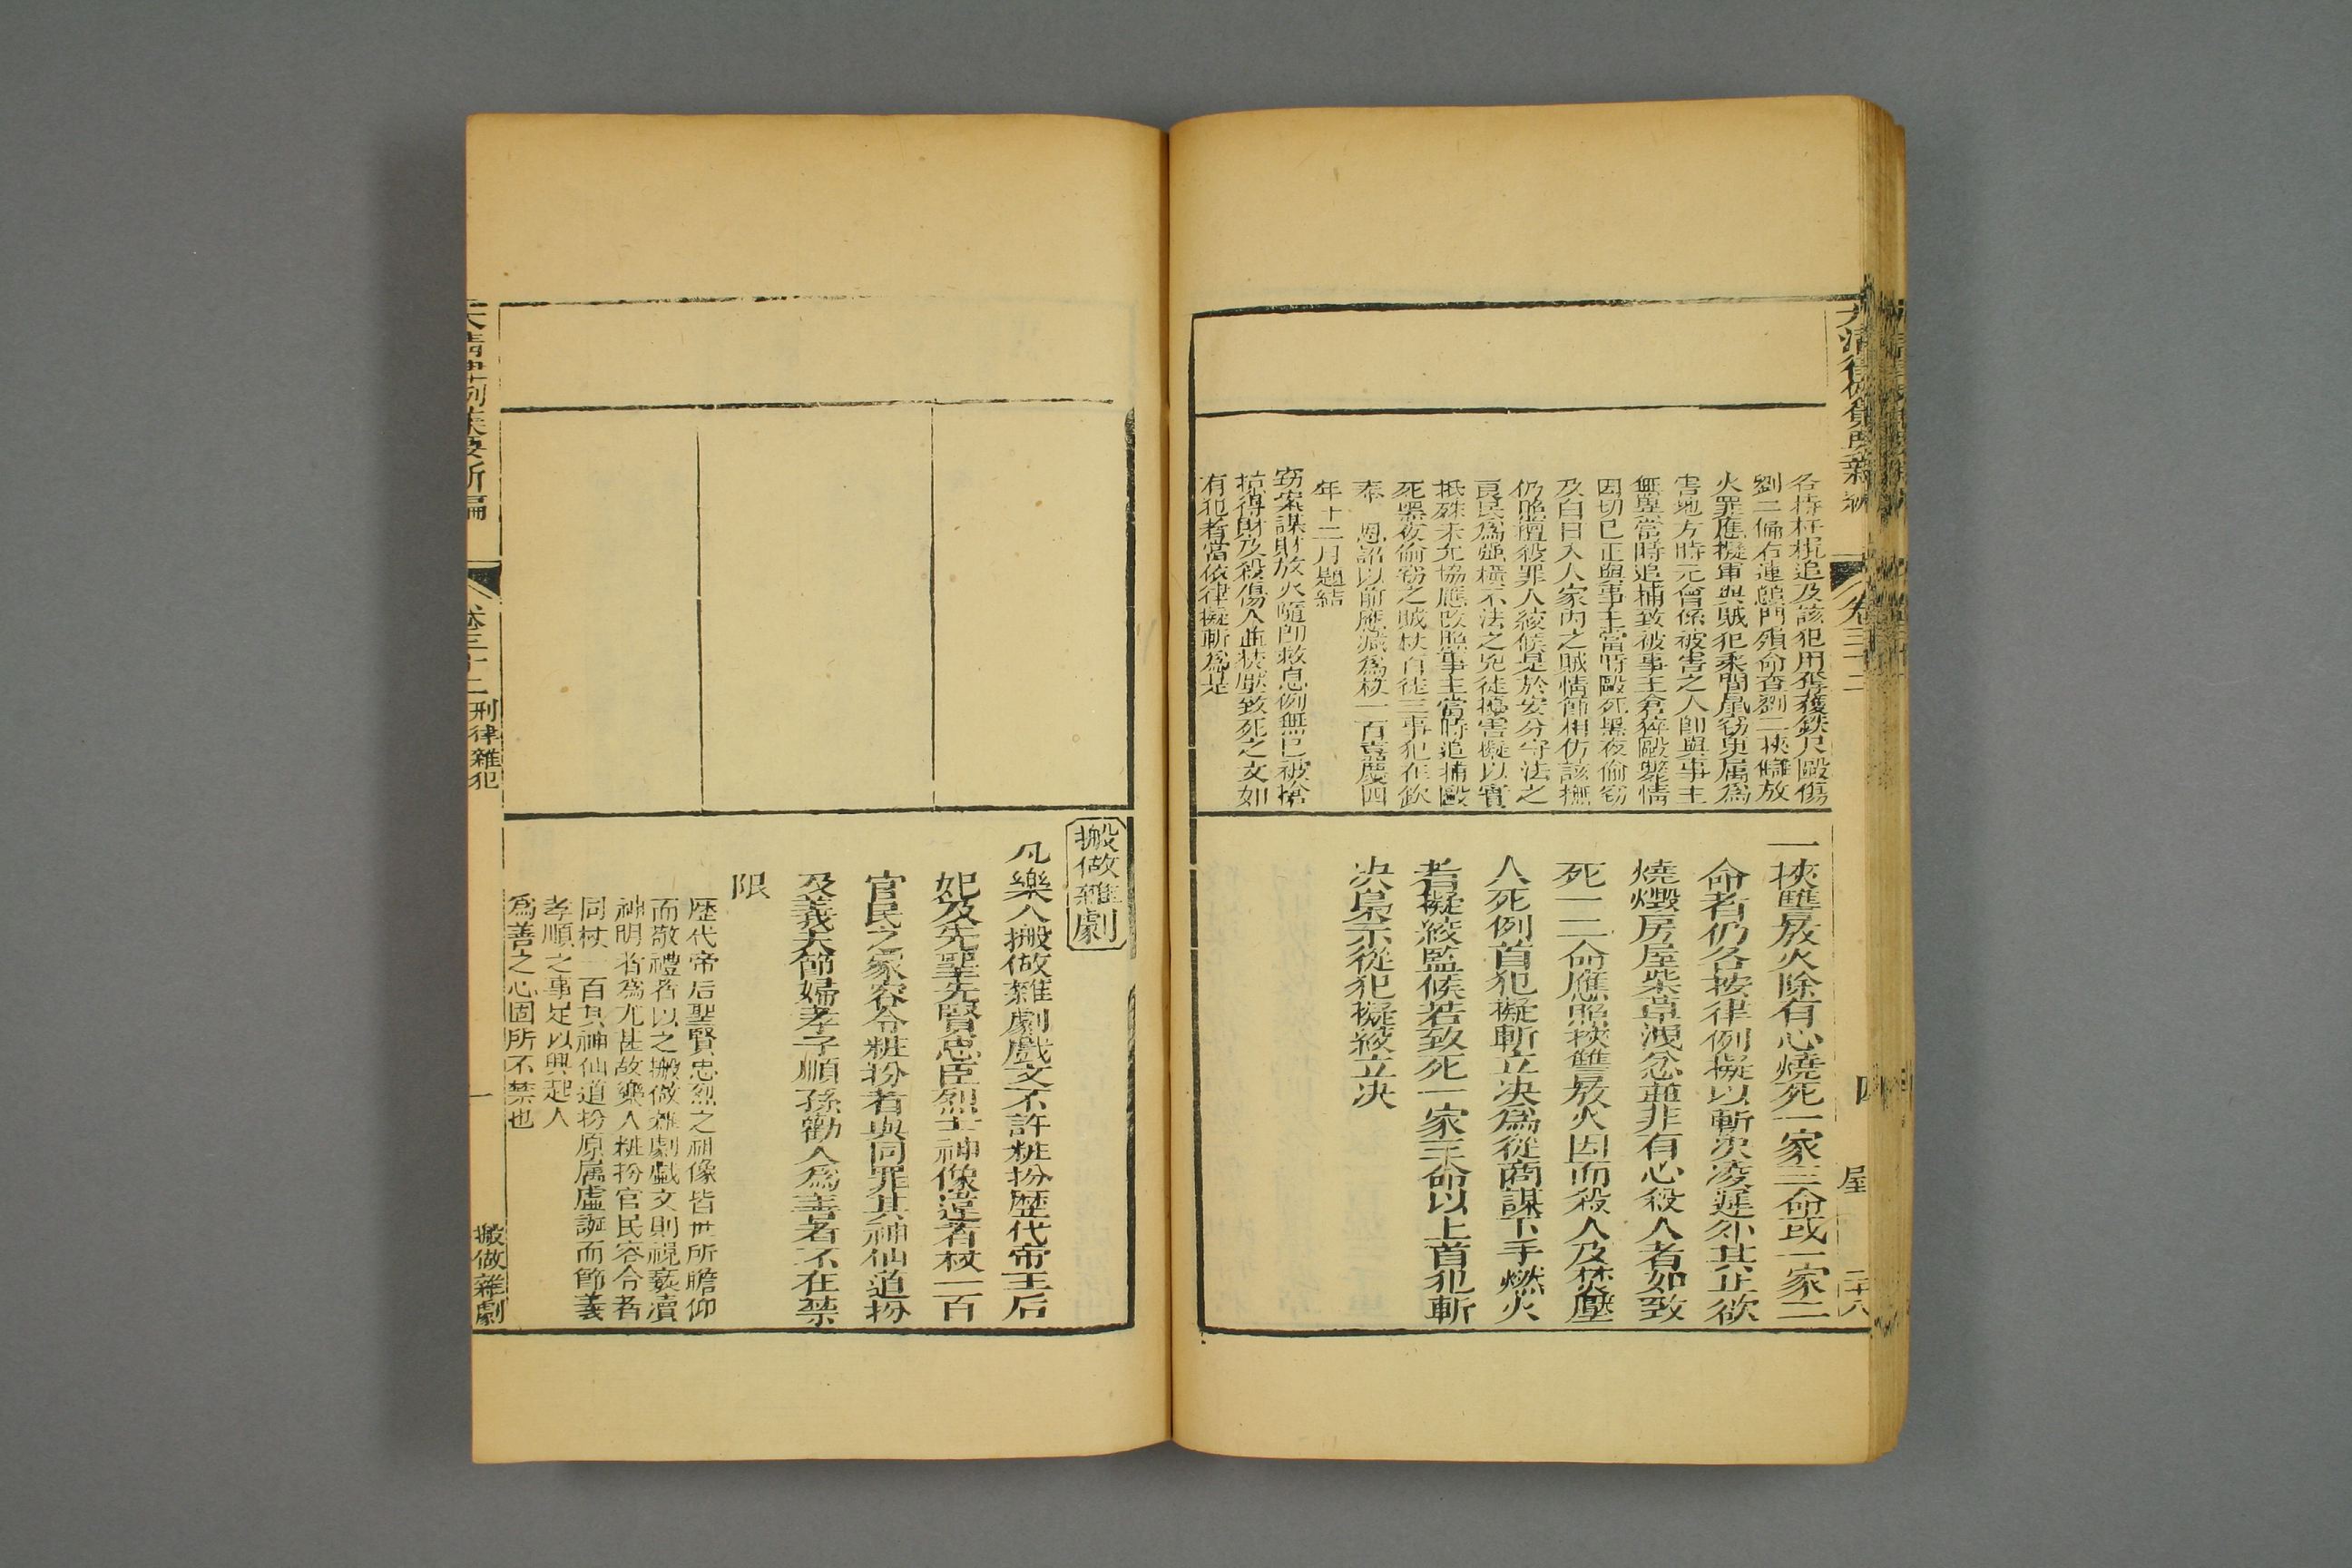 大清律例集要新編
卷三十二
四
屋
二十八
各持杆棍追及該犯用所獲鉄尺毆傷
劉二偏右連顋門殞命查劉二挾讐放
火罪應擬軍與賊犯乘間鼠竊臾属為
害地方時元會係被害之人卽與事主
無異當時追捕致被事主倉猝毆斃情
因切已正與事主當時毆死黑夜偷窃
及白日入人家内之賊情節相仿該撫
仍照擅殺罪人絞候是於安分守法之
良民為强橫不法之兇徒擾害擬以實
抵殊未允協應改照事主當時追捕毆
死黑夜偷窃之賊杖百徒三事犯在欽
奉 恩詔以前應減為杖一百嘉慶四
年十二月題結
窃案謀財放火隨卽救息例無已被搶
掠得財及殺傷人並挾壓致死之文如
有犯者當依律擬斬為是
一挾讐放火除有心燒死一家三命或一家二
命者仍各按律例擬以斬决凌遲外其止欲
燒燬房屋柴草洩忿並非有心殺人者如致
死一二命應照挾讐放火因而殺人及焚壓
人死例首犯擬斬立决為從商謀下手燃火
者擬絞監候若致死一家三命以上首犯斬
决梟示從犯擬絞立决
搬做雜劇
凡樂人搬做雜劇戲文不許粧扮歴代帝王后
妃及先聖先賢忠臣烈士神像違者杖一百
官民之家容令粧扮者與同罪其神仙道扮
及義夫節婦孝子順孫勸人為善者不在禁
限
歴代帝后聖賢忠烈之神像皆世所瞻仰
而敬禮者以之搬做雜劇戲文則視褻瀆
神明者為尤甚故樂人粧扮官民容令者
同杖一百其神仙道扮原属虛誕而節義
孝順之事足以興起人
為善之心固所不禁也
大清律例集要新編
卷三十二 刑律雜犯
一
搬做雜劇